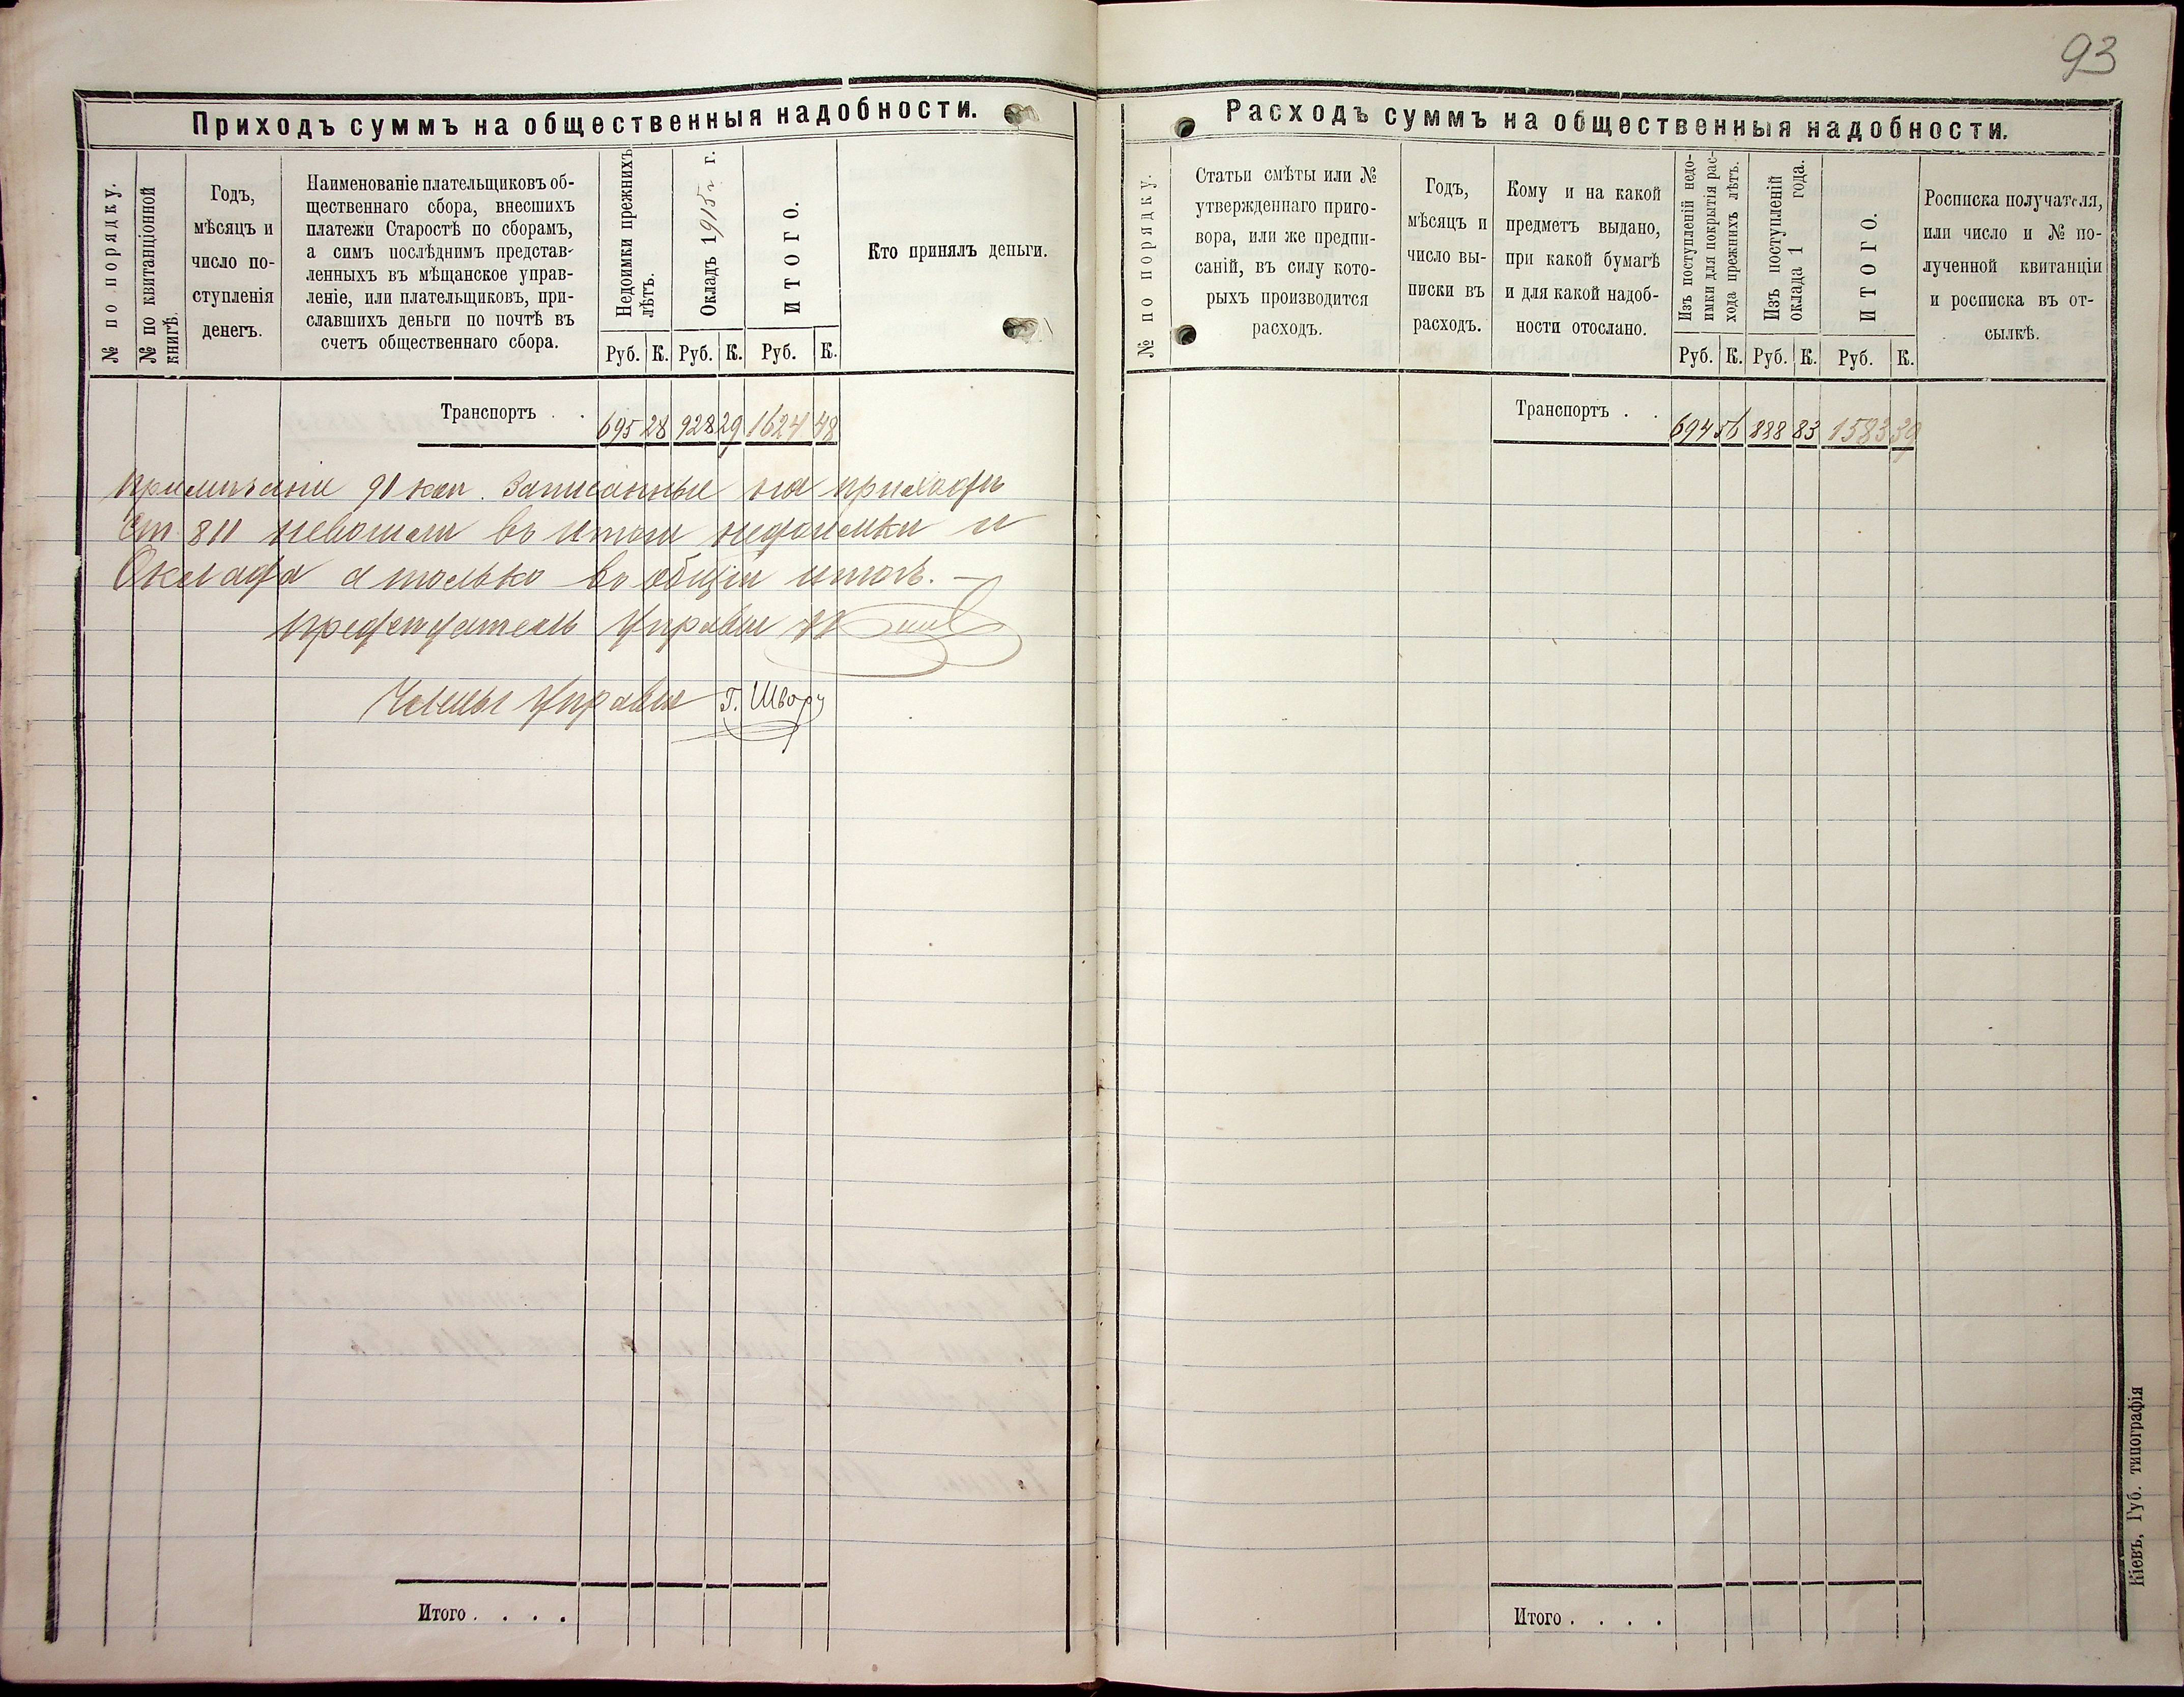 93
Приходъ суммъ на общественныя надобности.
№ по порядку.
№ по квитанціонной
книгѣ.
Годъ,
мѣсяцъ и
число по-
ступленія
денегъ.
Наименованіе плательщиковъ об-
щественнаго сбора, внесшихъ
платежи Старостѣ по сборамъ,
а симъ послѣднимъ представ-
ленныхъ въ мѣщанское управ-
леніе, или плательщиковъ, при-
славшихъ деньги по почтѣ въ
счетъ общественнаго сбора.
Недоимки прежнихъ
лѣтъ.
Окладъ 1915 г. г.
ИТОГО.
Кто принялъ деньги.
Руб. К. Руб. К. Руб. К.
Транспортъ . . 695 28 928 29 1624 48
Примѣчаніе 91 коп. Записанные на приходъ
Ст. 811 невошли въ итоги недоимки и
Оклада а только въ общій итогъ. —
Предсѣдатель Управы
Члены Управы Г. Швору
Расходъ суммъ на общественныя надобности.
№ по порядку.
Статьи смѣты или №
утвержденнаго приго-
вора, или же предпи-
саній, въ силу кото-
рыхъ производится
расходъ.
Годъ,
мѣсяцъ и
число вы-
писки въ
расходъ.
Кому и на какой
предметъ выдано,
при какой бумагѣ
и для какой надоб-
ности отослано.
Изъ поступленій недо-
имки для покрытія рас-
хода прежнихъ лѣтъ.
Изъ поступленій
оклада 1 года.
ИТОГО.
Росписка получателя,
или число и № по-
лученной квитанціи
и росписка въ от-
сылкѣ.
Руб. К. Руб. К. Руб. К.
Транспортъ . . 694 56 888 83 1583 39
Итого . . . .
Итого . . . .
Кіевъ, Губ. типографія